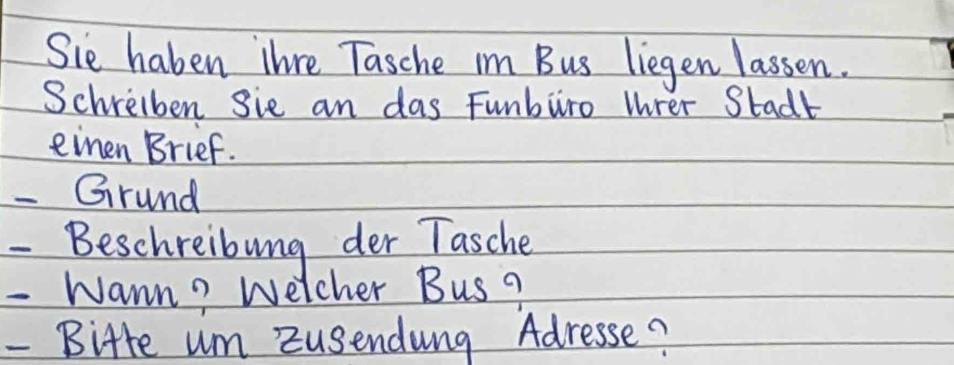 Sie haben ihre Tasche im Bus liegen lassen.
Schreiben Sie an das Funbüro Ihrer Stadt
einen Brief.
- Grund
- Beschreibung der Tasche
- Wann? Welcher Bus?
- Bitte um Zusendung Adresse?